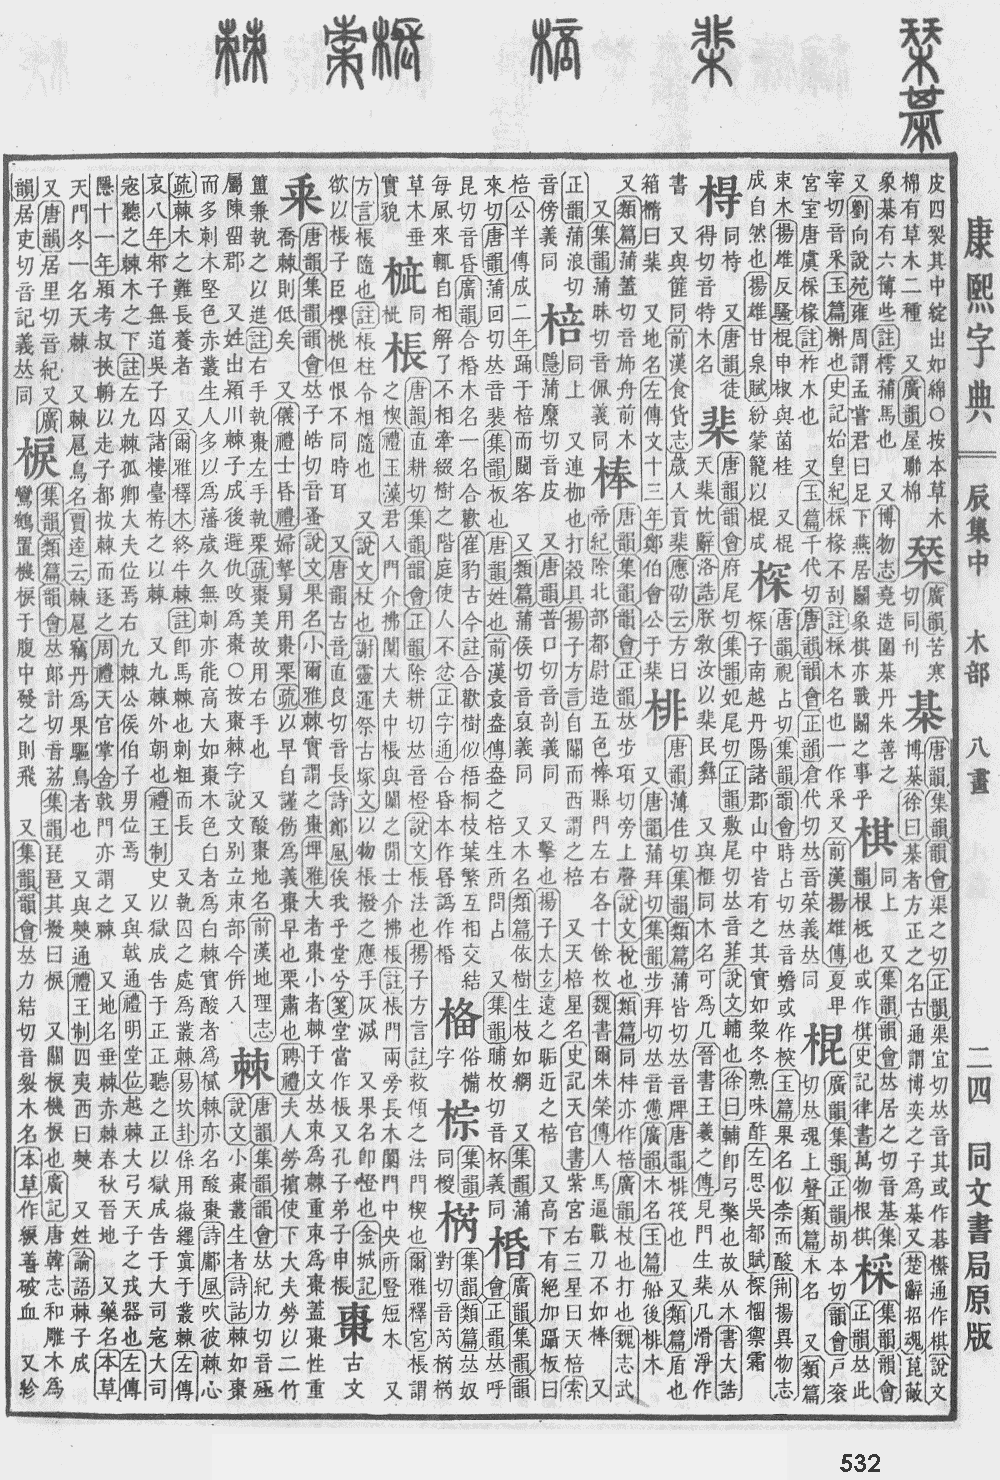 康熙字典 辰集中 木部 八畫 二四 同文書局原版
皮四裂其中綻出如綿○按本草木
棉有草木二種 又廣韻屋聯棉
栞 廣韻苦寒切同刊
棊 唐韻集韻韻會渠之切正韻渠宜切𠀤音其或作碁櫀通作棋說文
博棊徐曰棊者方正之名古通謂博奕之子爲棊又楚辭招魂菎蔽
象棊有六簙些註樗蒱馬也 又博物志堯造圍棊丹朱善之
又劉向說苑雍門周謂孟嘗君曰足下燕居鬭象棋亦戰鬭之事乎
棋 同上 又集韻韻會𠀤居之切音基集
韻根柢也或作棋史記律書萬物根棋
採 集韻韻會正韻𠀤此
宰切音采玉篇櫟也史記始皇紀採椽不刮註採木名也一作采又前漢揚雄傳夏卑
宮室唐虞採椽註柞木也 又玉篇千代切唐韻韻會正韻倉代切𠀤音菜義𠀤同
棍 廣韻集韻正韻胡本切韻會戸袞
切𠀤魂上聲木名 又類篇
束木揚雄反騷棍申椒與菌桂 又棍
成自然也揚雄甘泉賦紛蒙籠以棍成
棎 唐韻視占切集韻韻會時占切𠀤音蟾或作㮇玉篇果名似柰而酸荆揚異物志
棎子南越丹陽諸郡山中皆有之其實如棃冬熟味酢左思吳都賦棎榴禦霜
棏 同㭙 又唐韻徒
得切音特木名
棐 唐韻韻會府尾切集韻妃尾切正韻敷尾切𠀤音菲說文輔也徐曰輔卽弓檠也故从木書大誥
天棐忱辭洛誥朕敎汝以棐民彝 又與榧同木名可爲几晉書王羲之傳見門生棐几滑淨作
書 又與篚同前漢食貨志歲入貢棐應劭云方曰
箱橢曰棐 又地名左傳文十三年鄭伯會公于棐
棑 唐韻薄佳切集韻類篇蒲皆切𠀤音牌唐韻棑筏也 又類篇盾也
又唐韻蒲拜切集韻步拜切𠀤音憊廣韻木名玉篇船後棑木
又類篇蒲蓋切音旆舟前木
又集韻蒲昧切音佩義同
棒 唐韻集韻韻會正韻𠀤步項切旁上聲說文棁也類篇同桻亦作棓廣韻杖也打也魏志武
帝紀除北部都尉造五色棒縣門左右各十餘枚魏書爾朱榮傳人馬逼戰刀不如棒 又
正韻蒲浪切
音傍義同
棓 同上 又連枷也打穀具揚子方言自關而西謂之棓 又天棓星名史記天官書紫宮右三星曰天棓索
隱蒲縻切音皮 又唐韻普口切音剖義同 又擊也揚子太玄遠之近之棓 又高下有絕加躡板曰
棓公羊傳成二年踊于棓而闚客 又類篇蒲侯切音裒義同 又木名類篇依樹生枝如網 又集韻蒲
來切唐韻蒲回切𠀤音裴集韻板也唐韻姓也前漢袁盎傳盎之棓生所問占 又集韻晡枚切音杯義同
棔 廣韻集韻韻
會正韻𠀤呼
昆切音昏廣韻棔木名一名合歡崔豹古今註合歡樹似梧桐枝葉繁互相交結
每風來輒自相解了不相牽綴樹之階庭使人不忿正字通合昏本作昏譌作棔
棕 集韻同椶
集韻類篇𠀤奴
對切音芮
草木垂
實貌
棖 唐韻直耕切集韻正韻除耕切𠀤音橙說文棖法也揚子方言註救傾之法門楔也爾雅釋宮棖謂
之楔禮玉藻君入門介拂闑大夫中棖與闑之閒士介拂棖註棖門兩旁長木闑門中央所豎短木 又
方言棖隨也註棖柱令相隨也 又說文杖也謝靈運祭古塚文以物棖撥之應手灰滅 又果名卽橙也金城記
欲以棖子臣櫻桃但恨不同時耳 又唐韻古音直良切音長詩鄭風俟我乎堂兮箋堂當作棖又孔子弟子申棖
棗 古文
唐韻集韻韻會𠀤子皓切音蚤說文果名小爾雅棘實謂之棗埤雅大者棗小者棘于文𠀤朿爲棘重朿爲棗蓋棗性重
喬棘則低矣 又儀禮士昏禮婦摯舅用棗栗疏以早自謹飭爲義棗早也栗肅也聘禮夫人勞擯使下大夫勞以二竹
簠兼執之以進註右手執棗左手執栗疏棗美故用右手也 又酸棗地名前漢地理志
屬陳留郡 又姓出潁川棘子成後避仇改爲棗○按棗棘字說文別立朿部今倂入
棘 唐韻集韻韻會𠀤紀力切音亟
說文小棗叢生者詩詁棘如棗
而多刺木堅色赤叢生人多以爲藩歲久無刺亦能高大如棗木色白者爲白棘實酸者爲樲棘亦名酸棗詩邶風吹彼棘心
疏棘木之難長養者 又爾雅釋木終牛棘註卽馬棘也刺粗而長 又執囚之處爲叢棘易坎卦係用徽纆寘于叢棘左傳
哀八年邾子無道吳子囚諸樓臺栫之以棘 又九棘外朝也禮王制史以獄成告于正正聽之正以獄成告于大司寇大司
寇聽之棘木之下註左九棘孤卿大夫位焉右九棘公侯伯子男位焉 又與戟通禮明堂位越棘大弓天子之戎器也左傳
隱十一年潁考叔挾輈以走子都拔棘而逐之周禮天官掌舍戟門亦謂之棘 又地名垂棘赤棘春秋晉地 又藥名本草
天門冬一名天棘 又棘扈鳥名賈逵云棘扈竊丹爲果驅鳥者也 又與僰通禮王制四夷西曰僰 又姓論語棘子成
又唐韻居里切音紀又廣
韻居吏切音記義𠀤同
棙 集韻類篇韻會𠀤郎計切音荔集韻琵琶其撥曰棙 又關棙機棙也廣記唐韓志和雕木爲
鸞鶴置機棙于腹中發之則飛 又集韻韻會𠀤力結切音𥻘木名本草作綟善破血 又紾
532